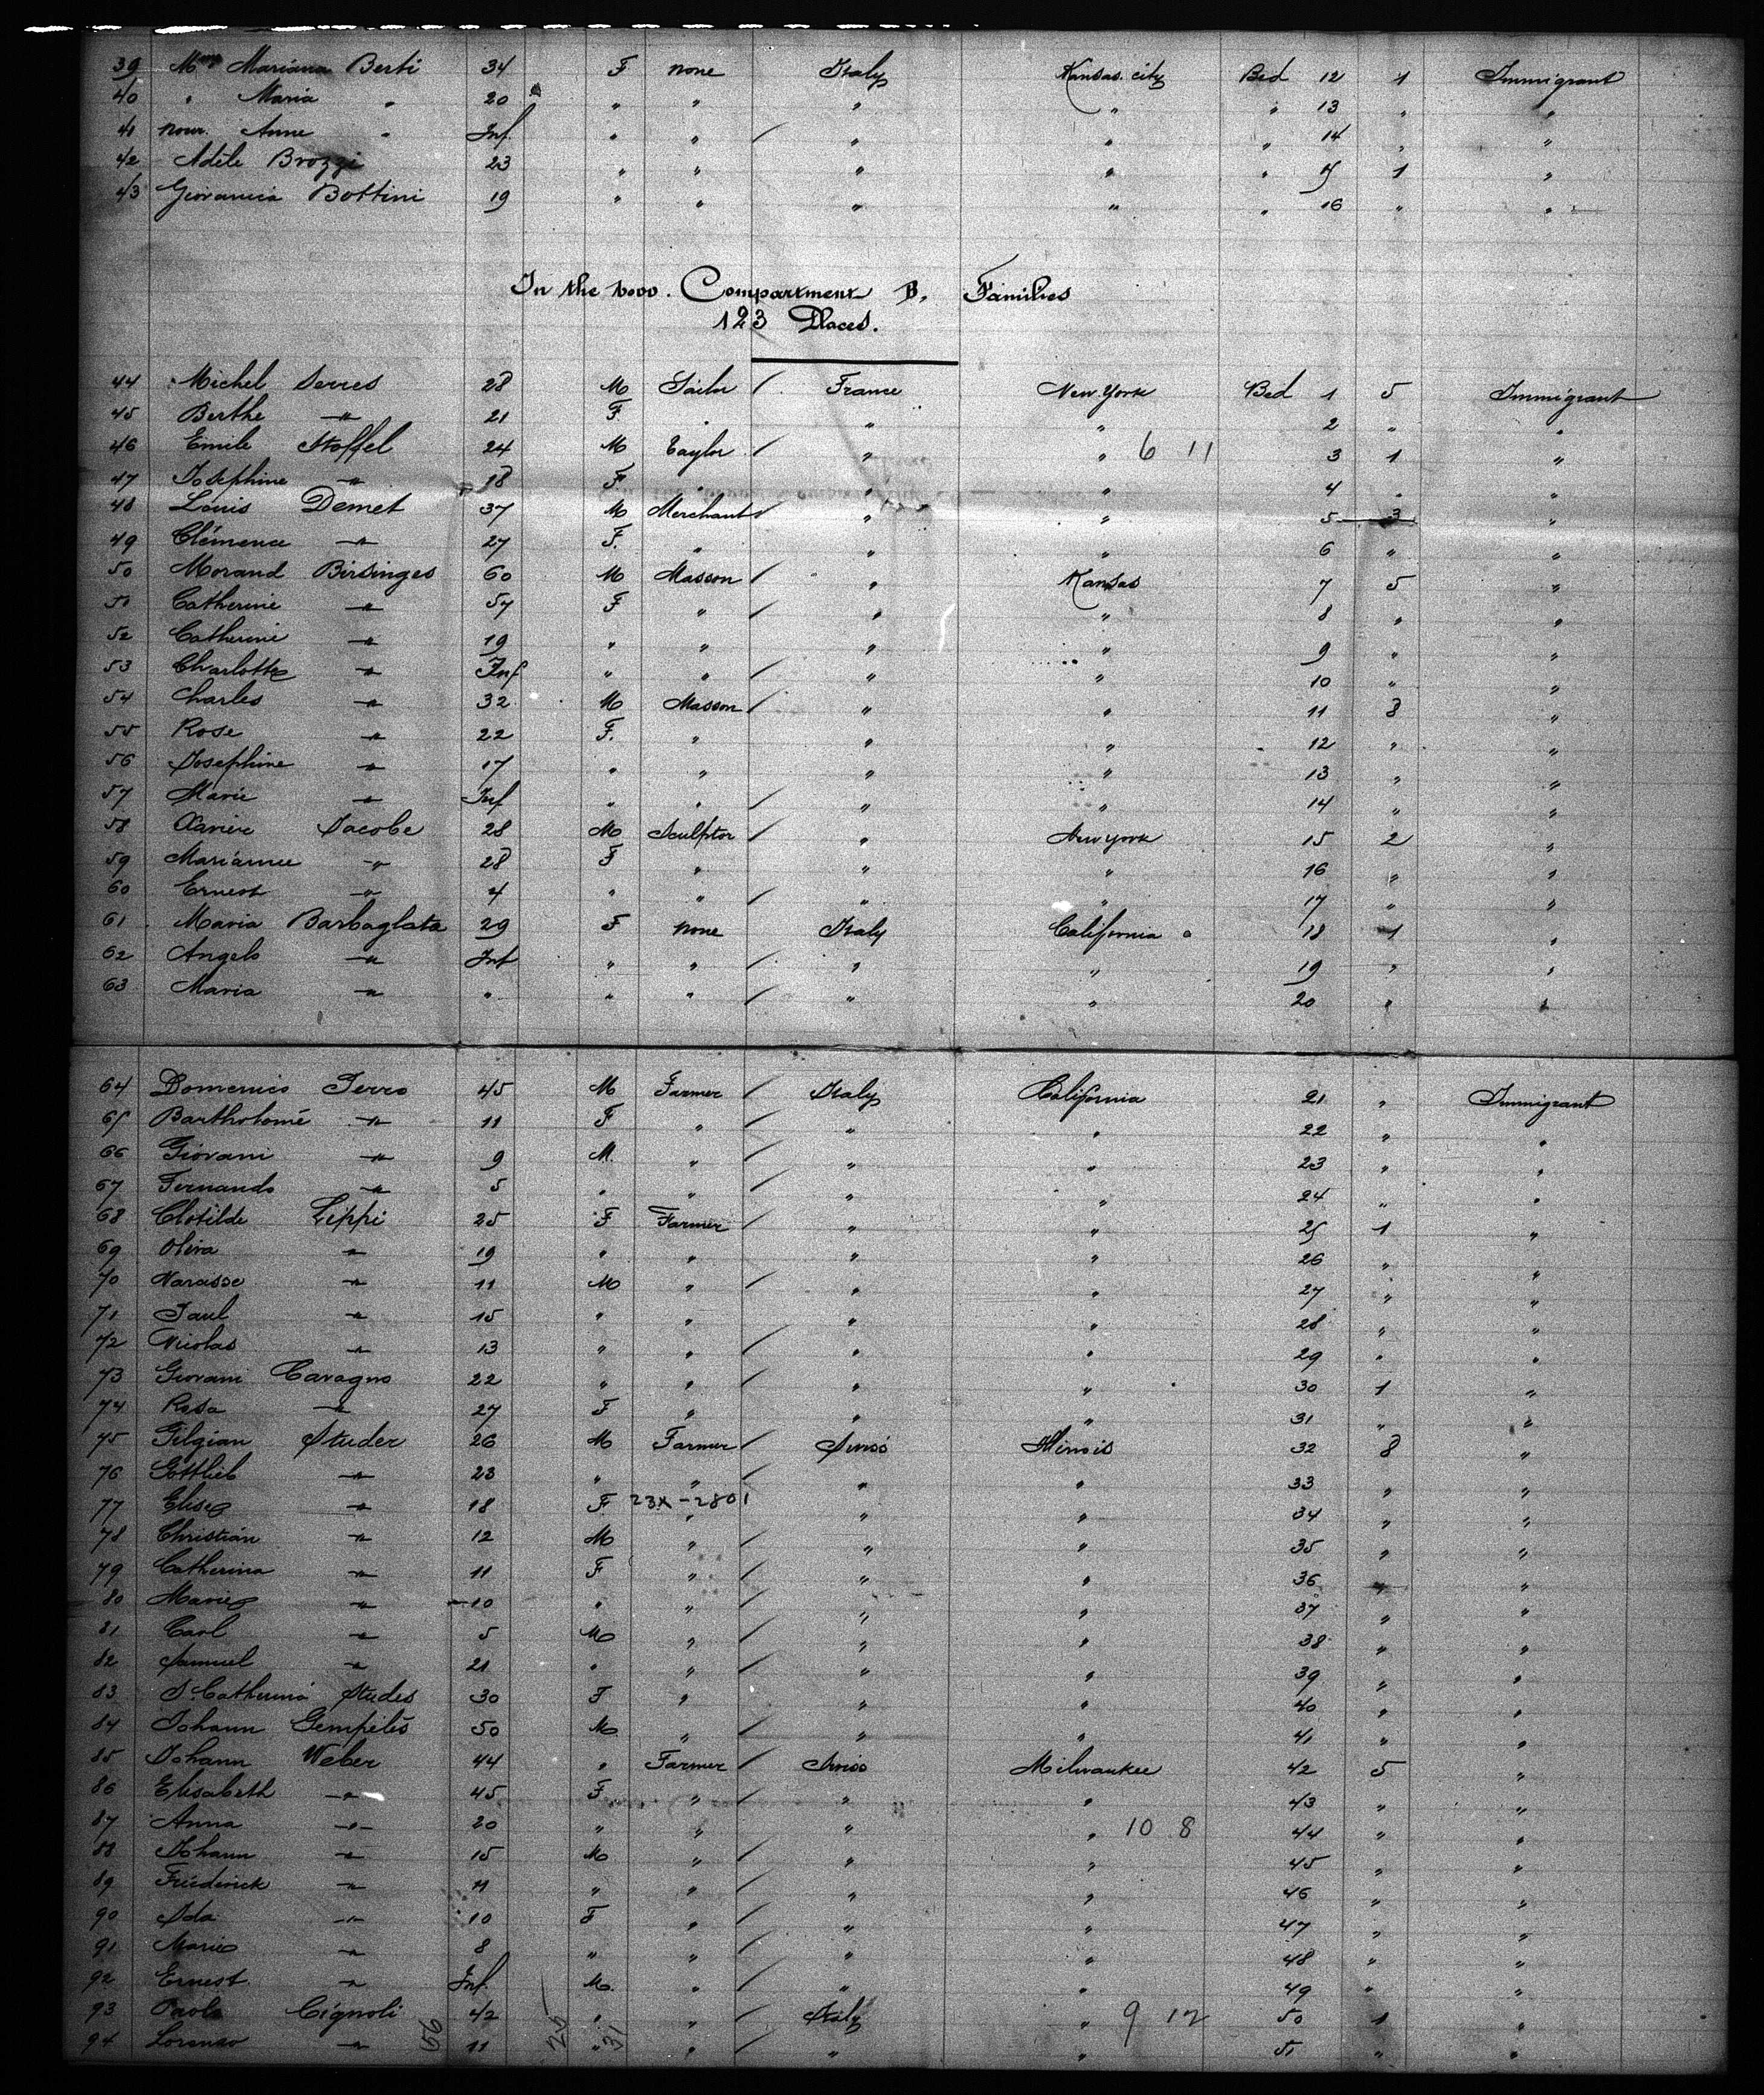 39 Mme Mariana Berti 34 F none Italy Kansas city Bed 12 1 Immigrant
40 " Maria " 20 " " " " " 13 " "
41 nour. Anne " Inf. " " " " " 14 " "
42 Adèle Brozzi 23 " " " " " 15 1 "
43 Giovanna Bottini 19 " " " " " 16 " "
In the 1000. Compartment B. Families
123 Places.
44 Michel Serres 28 M Sailor France New York Bed 1 5 Immigrant
45 Berthe " 21 F " " " 2 " "
46 Emile Stoffel 24 M Taylor " " 6 11 3 1 "
47 Josephine " 18 F " " " 4 " "
48 Louis Demet 37 M Merchant " " 5 3 "
49 Clémence " 27 F. " " " 6 " "
50 Morand Birsinges 60 M Masson " Kansas 7 5 "
51 Catherine " 57 F " " " 8 " "
52 Catherine " 19 " " " " 9 " "
53 Charlotte " Inf " " " " 10 " "
54 Charles " 32 M Masson " " 11 8 "
55 Rose " 22 F. " " " 12 " "
56 Josephine " 17 " " " " 13 " "
57 Marie " Inf " " " " 14 " "
58 Xavier Jacobe 28 M Sculptor " New York 15 2 "
59 Marianne " 28 F " " " 16 " "
60 Ernest " 4 " " " " 17 " "
61 Maria Barbaglata 29 F none Italy California 18 1 "
62 Angelo " Inf " " " " 19 " "
63 Maria " " " " " " 20 " "
64 Domenico Ferro 45 M Farmer Italy California 21 " Immigrant
65 Bartholomé " 11 F " " " 22 " "
66 Giovani " 9 M. " " " 23 " "
67 Fernando " 5 " " " " 24 " "
68 Clotilde Lippi 25 F Farmer " " 25 1 "
69 Oliva " 19 " " " " 26 " "
70 Narcisse " 11 M " " " 27 " "
71 Paul " 15 " " " " 28 " "
72 Nicolas " 13 " " " " 29 " "
73 Giovani Cavagno 22 " " " " 30 1 "
74 Rosa " 27 F " " " 31 " "
75 Gilgian Studer 26 M Farmer Swiss Illinois 32 8 "
76 Gottlieb " 23 " " " " 33 " "
77 Elise " 18 F 23X-2801 " " " 34 " "
78 Christian " 12 M " " " 35 " "
79 Catherina " 11 F " " " 36 " "
80 Marie " 10 " " " " 37 " "
81 Carl " 5 M " " " 38 " "
82 Samuel " 21 " " " " 39 " "
83 S. Catherina Studes 30 F " " " 40 " "
84 Johann Gempeles 50 M " " " 41 " "
85 Johann Weber 44 " Farmer Swiss Milwaukee 42 5 "
86 Elisabeth " 45 F " " " 43 " "
87 Anna " 20 " " " " 10 8 44 " "
88 Johann " 15 M " " " 45 " "
89 Frédérick " 11 " " " " 46 " "
90 Ida " 10 F " " " 47 " "
91 Marie " 8 " " " " 48 " "
92 Ernest " Inf. M. " " " 49 " "
93 Paolo Cignoli 42 " " Italy " 9 12 50 1 "
94 Lorenzo " 11 " " " " 51 " "
56 25 31